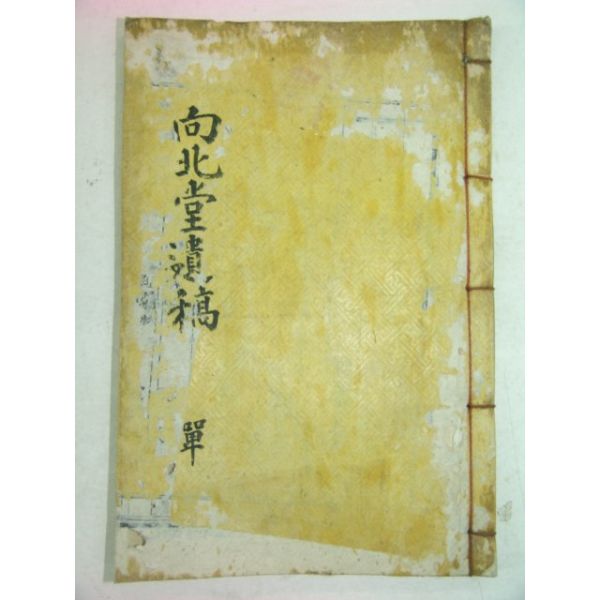 向北堂遺稿
單